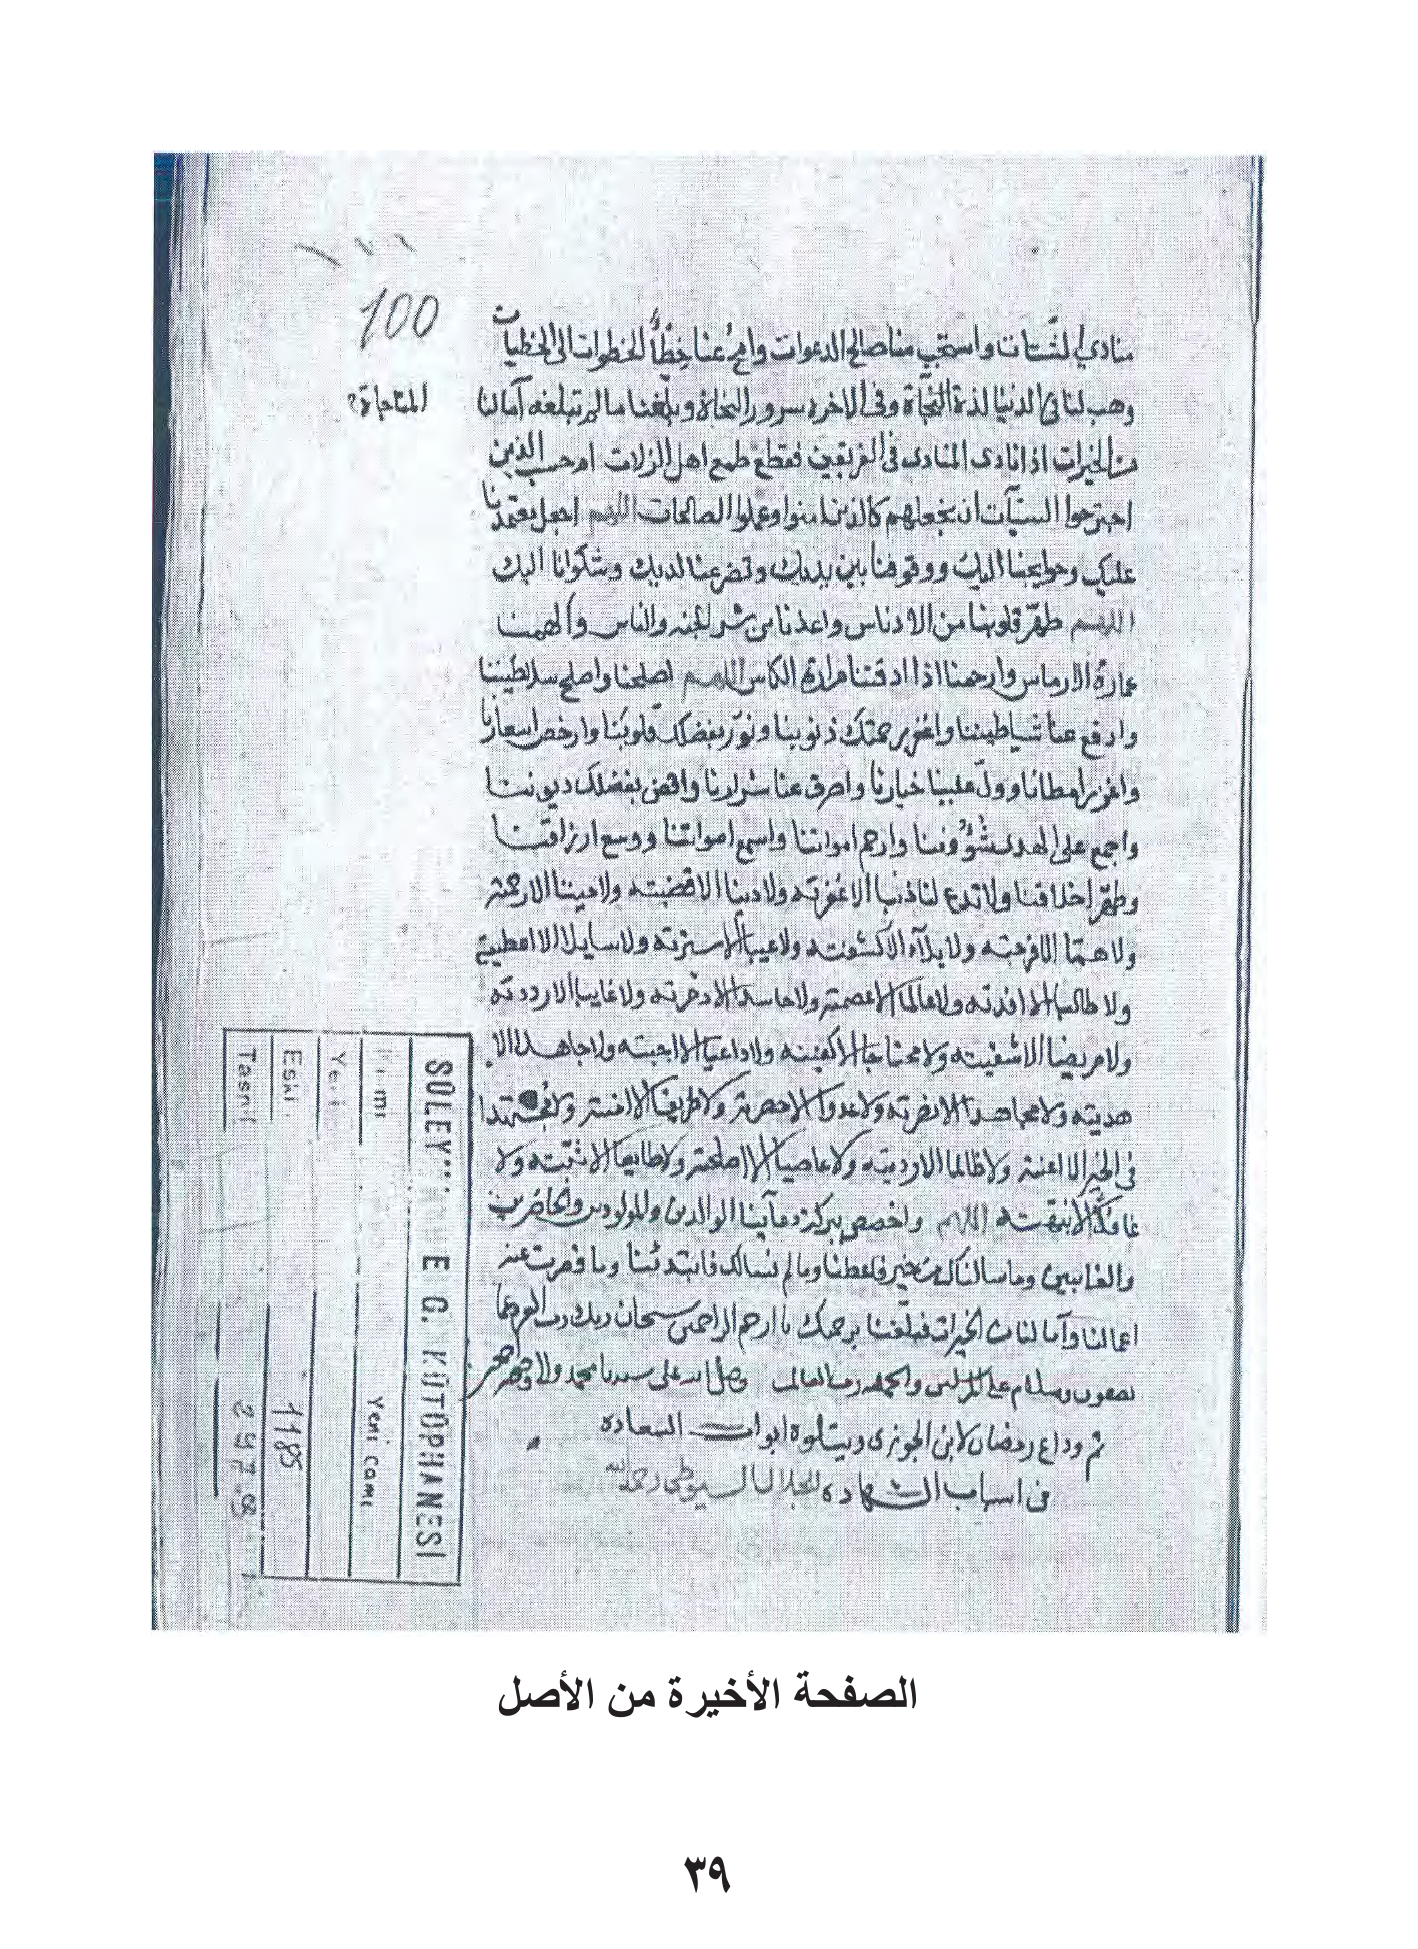 100
المناجاة
واستجب منا صالح الدعوات وامح عنا خطأ الخطوات الى الخطيات
وهب لنا في الدنيا لذة وفي الاخرة سرور النجاة وبلغنا ما لم تبلغه آمالنا
من الخيرات اذا نادى المنادى في الفريقين فقطع طمع اهل الزلات ام حسب الذين
اجترحوا السيآت أن نجعلهم كالذين امنوا وعملوا الصالحات اللهم اجعل معتمدنا
عليك وحوايجنا اليك ووقوفنا بين يديك وتضرعنا لديك وشكوانا اليك
اللهم طهر قلوبنا من الادناس واعذنا من شر الجنه والناس وألهمنا
عمارة الارماس وارحمنا اذا اذقتنا مرارة الكاس اللهم اصلحنا واصلح سلاطيننا
وادفع عنا شياطيننا واغفر برحمتك ذنوبنا ونور بفضلك قلوبنا وارخص اسعارنا
واغزر امطارنا وول علينا خيارنا واصرف عنا شرارنا واقض بفضلك ديوننا
واجمع على الهدى شؤوننا وارحم امواتنا ووسع ارزاقنا
وطهر اخلاقنا ولا تدع لنا ذنبا الا غفرته ولا دينا الا قضيته ولا ميتا الا رحمته
ولا هما الا فرجته ولا بلآء الا كشفته ولا عيبا الا سترته ولا سايلا الا اعطيته
ولا الا ولا عالما الا عصمته ولا حاسدا الا دحرته ولا غايبا الا رددته
ولا مريضا الا شفيته ولا محتاجا الا كفيته ولا داعيا الا اجبته ولا جاهدا الا
هديته ولا مجاهدا الا نصرته ولا عدوا الا ولا طريقا الا امنته ولا مجتهدا
في الخير الا اعنته ولا ظالما الا ارديته ولا عاصيا الا اصلحته ولا طايعا الا ثبته ولا
غافلا الا ايقظته اللهم واخصص ببركة دعآينا الوالدين والمولودين والحاضرين
والغايبين وما سالناك من خير فاعطنا وما لم نسالك فابتدئنا وما قصرت عنه
اعمالنا وآمالنا من الخيرات فبلغنا برحمتك يا ارحم الراحمين سبحان ربك رب العزة عما
يصفون وسلام على المرسلين والحمد لله رب العالمين وصلى الله على سيدنا محمد
تم وداع رمضان لابن الجوزى ويتلوه ابواب السعاده
في اسباب الشهاده للجلال السيوطي رحمه الله
SÜLEYMANİYE G. KÜTÜPHANESİ
Yeni Cami
Yeni
Eski 1185
Tasnif
الصفحة الأخيرة من الأصل
٣٩